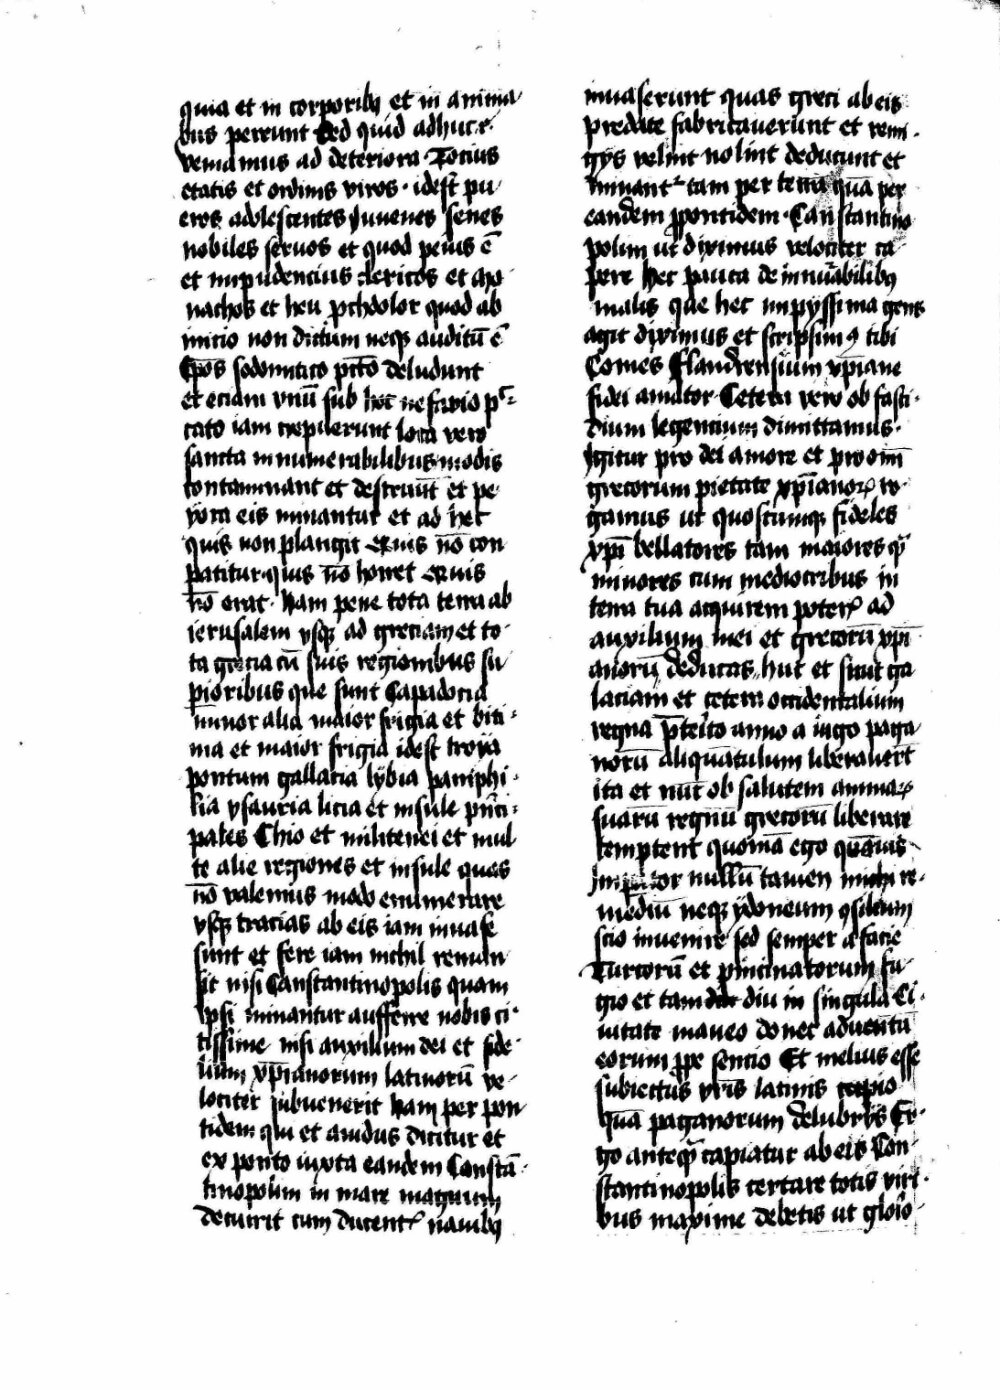 quia et in corporibꝫ et in anima
bus pereunt Sed quid adhuc?
veniamus ad deteriora. Tocius
etatis et ordinis viros. idest pu
eros adolescentes Juvenes senes
nobiles servos et quod peius ē
et impudencius clericos et mo
nachos et heu prchdolor quod ab
inicio non dictum neqꝫ auditū ē
Ep̄os sodomitico pctō deludunt
et eciam vnū sub hoc nefario pc̄
cato iam crepuerunt loca vero
sancta innumerabilibus modis
contaminant et destruūt et pe
yora eis minantur et ad hec
quis non plangit Quis nō con
patitur. quis nō horret Quis
nō orat. Nam pene tota terra ab
ierusalem vsqꝫ ad greciam et to
ta grecia cū suis regionibus su
pioribus que sunt Capadocia
minor alia maior frigia et biti
nia et maior frigia idest troya
pontum gallacia lybia pamphi
lia ysauria licia et insule pn̄ci
pales Chio et militenei et mul
te alie regiones et insule ques
nō valemus modo enumerare
vsqꝫ tracias ab eis iam inuase
sunt et fere iam nichil reman
sit nisi Constantinopolis quam
ipsi minantur aufferre nobis ci
tissime nisi auxilium dei et fide
lium xp̄ianorum latinorū ve
lociter subuenerit Nam per pon
tidem qui et auidus dicitur et
ex ponto iuxta eandem Constā
tinopolim in mare magnum
decurrit cum ducentꝭ nauibꝫ
inuaserunt quas greci ab eis
predate fabricauerunt et remi
gys velint nolint deducunt et
minantꝭ tam per terrā quā per
eandem ꝓpontidem. Constantino
polim ut diximus velociter ca
pere hec pauca de innūabilibꝫ
malis que hec impyssima gens
agit diximus et scripsimꝰ tibi
Comes Flandrensium xp̄iane
fidei amator. Cetera vero ob fasti
dium legencium dimittamus.
Igitur pro dei amore et pro om̄i
grecorum pietate xp̄ianoꝝ ro
gamus ut quoscumqꝫ fideles
xp̄i bellatores tam maiores qꝫ
minores cum mediocribus in
terra tua acquirere poterꝭ ad
auxilium mei et grecorū xp̄i
anorū deducas huc et sicut ga
laciam et cetera occidentalium
regna p̄terito anno a iugo paga
norū aliquātulum liberauerūt
ita et nūc ob salutem animaꝝ
suarū regnū grecorū liberare
temptent quoniā ego quāuis
Imperator nullū tamen michi re
mediū neqꝫ ydoneum ꝯsilium
scio inuenire sed semper a facie
Turcorū et pincinatorum fu
gio et tam diu in singula Ci
uitate maneo donec aduentū
eorum ꝓpe sentio Et melius esse
subiectus vr̄is latinis cupio
quā paganorum delubriis Er
go anteqꝫ capiatur ab eis Con
stantinopolis certare totis viri
bus maxime debetis ut glorio